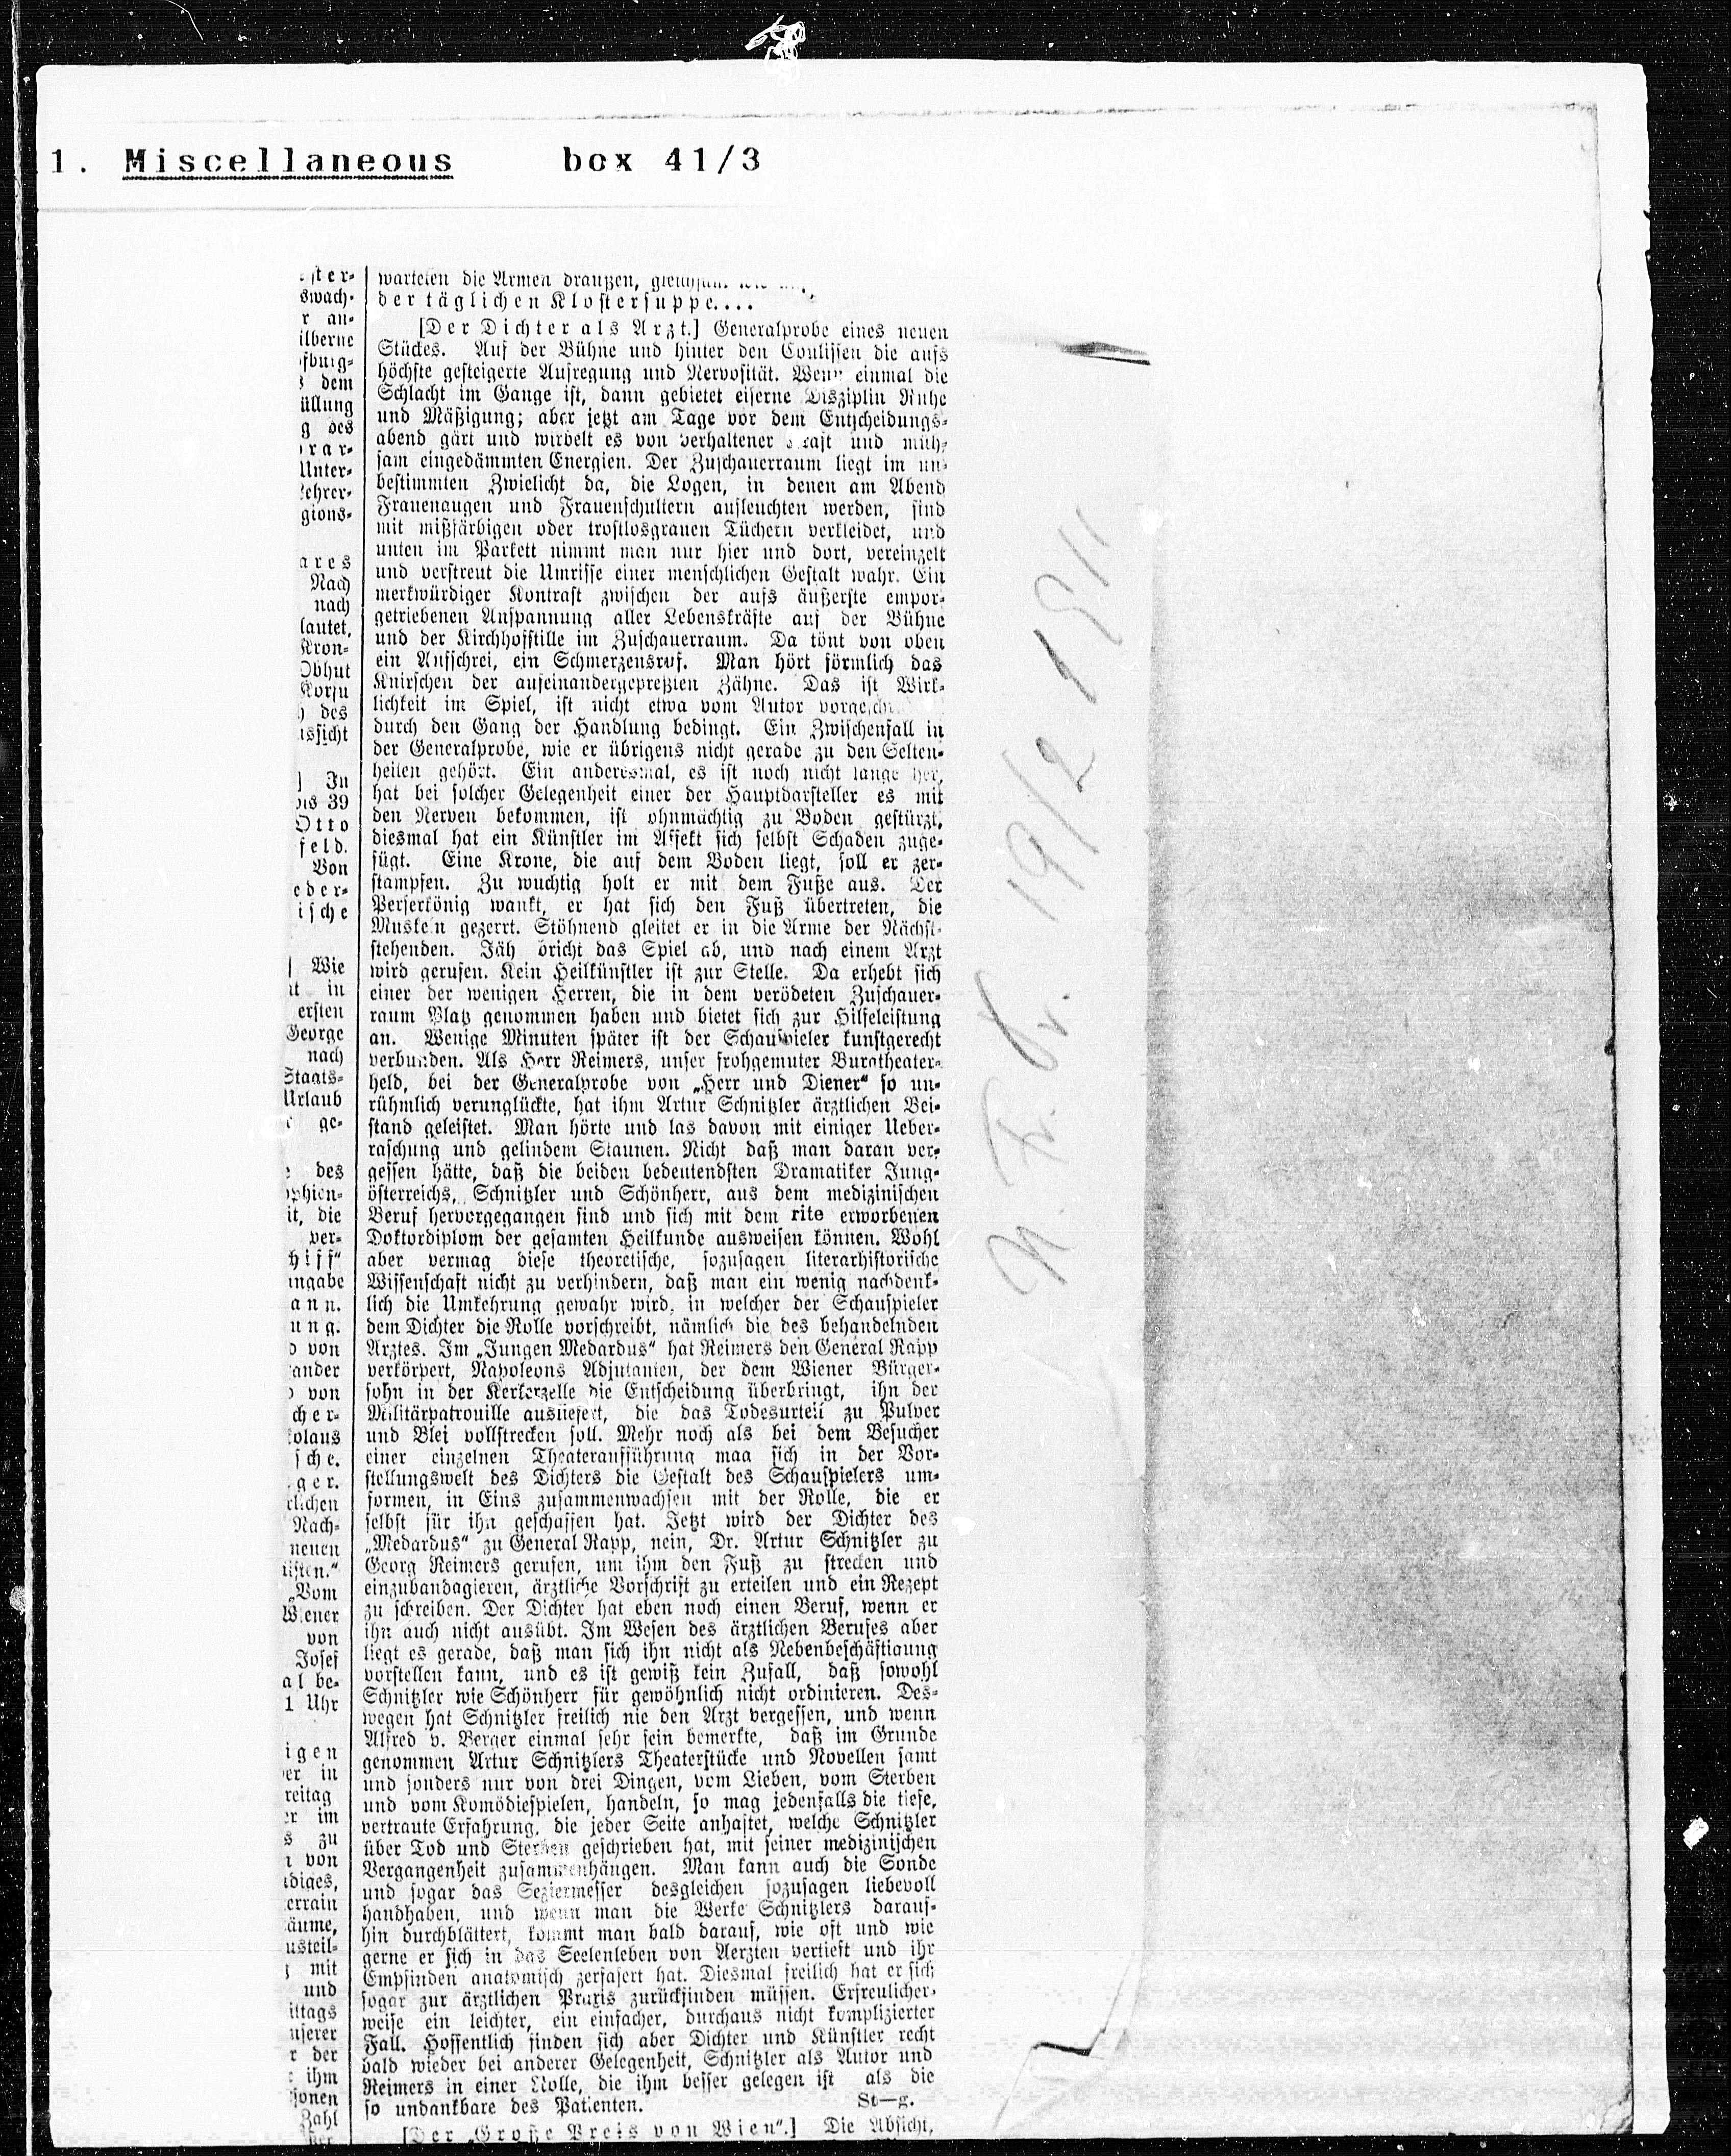 1. Miscellaneous box 41/3
warteten die Armen draußen,
der täglichen Klostersuppe....
[Der Dichter als Arzt.] Generalprobe eines neuen
Stückes. Auf der Bühne und hinter den Coulissen die aufs
höchste gesteigerte Aufregung und Nervosität. Wenn einmal die
Schlacht im Gange ist, dann gebietet eiserne Disziplin Ruhe
und Mäßigung; aber jetzt am Tage vor dem Entscheidungs-
abend gärt und wirbelt es von verhaltener und müh-
sam eingedämmten Energien. Der Zuschauerraum liegt im un-
bestimmten Zwielicht da, die Logen, in denen am Abend
Frauenaugen und Frauenschultern aufleuchten werden, sind
mit mißfärbigen oder trostlosgrauen Tüchern verkleidet, und
unten im Parkett nimmt man nur hier und dort, vereinzelt
und verstreut die Umrisse einer menschlichen Gestalt wahr. Ein
merkwürdiger Kontrast zwischen der aufs äußerste empor-
getriebenen Anspannung aller Lebenskräfte auf der Bühne
und der Kirchhofstille im Zuschauerraum. Da tönt von oben
ein Aufschrei, ein Schmerzensruf. Man hört förmlich das
Knirschen der aufeinandergepreßten Zähne. Das ist Wirk-
lichkeit im Spiel, ist nicht etwa vom Autor
durch den Gang der Handlung bedingt. Ein Zwischenfall in
der Generalprobe, wie er übrigens nicht gerade zu den Selten-
heiten gehört. Ein anderesmal, es ist noch nicht lange her,
hat bei solcher Gelegenheit einer der Hauptdarsteller es mit
den Nerven bekommen, ist ohnmächtig zu Boden gestürzt,
diesmal hat ein Künstler im Affekt sich selbst Schaden zuge-
fügt. Eine Krone, die auf dem Boden liegt, soll er zer-
stampfen. Zu wuchtig holt er mit dem Fuße aus. Der
Perserkönig wankt, er hat sich den Fuß übertreten, die
Muskeln gezerrt. Stöhnend gleitet er in die Arme der Nächst-
stehenden. Jäh bricht das Spiel ab, und nach einem Arzt
wird gerufen. Kein Heilkünstler ist zur Stelle. Da erhebt sich
einer der wenigen Herren, die in dem verödeten Zuschauer-
raum Platz genommen haben und bietet sich zur Hilfeleistung
an. Wenige Minuten später ist der Schauspieler kunstgerecht
verbunden. Als Herr Reimers, unser frohgemuter Burgtheater-
held, bei der Generalprobe von „Herr und Diener“ so un-
rühmlich verunglückte, hat ihm Artur Schnitzler ärztlichen Bei-
stand geleistet. Man hörte und las davon mit einiger Ueber-
raschung und gelindem Staunen. Nicht daß man daran ver-
gessen hätte, daß die beiden bedeutendsten Dramatiker Jung-
österreichs, Schnitzler und Schönherr, aus dem medizinischen
Beruf hervorgegangen sind und sich mit dem rite erworbenen
Doktordiplom der gesamten Heilkunde ausweisen können. Wohl
aber vermag diese theoretische, sozusagen literarhistorische
Wissenschaft nicht zu verhindern, daß man ein wenig nachdenk-
lich die Umkehrung gewahr wird, in welcher der Schauspieler
dem Dichter die Rolle vorschreibt, nämlich die des behandelnden
Arztes. Im „Jungen Medardus“ hat Reimers den General Rapp
verkörpert, Napoleons Adjutanten, der dem Wiener Bürger-
sohn in der Kerkerzelle die Entscheidung überbringt, ihn der
Militärpatrouille ausliefert, die das Todesurteil zu Pulver
und Blei vollstrecken soll. Mehr noch als bei dem Besucher
einer einzelnen Theateraufführung mag sich in der Vor-
stellungswelt des Dichters die Gestalt des Schauspielers um-
formen, in Eins zusammenwachsen mit der Rolle, die er
selbst für ihn geschaffen hat. Jetzt wird der Dichter des
„Medardus“ zu General Rapp, nein, Dr. Artur Schnitzler zu
Georg Reimers gerufen, um ihm den Fuß zu strecken und
einzubandagieren, ärztliche Vorschrift zu erteilen und ein Rezept
zu schreiben. Der Dichter hat eben noch einen Beruf, wenn er
ihn auch nicht ausübt. Im Wesen des ärztlichen Berufes aber
liegt es gerade, daß man sich ihn nicht als Nebenbeschäftigung
vorstellen kann, und es ist gewiß kein Zufall, daß sowohl
Schnitzler wie Schönherr für gewöhnlich nicht ordinieren. Des-
wegen hat Schnitzler freilich nie den Arzt vergessen, und wenn
Alfred v. Berger einmal sehr fein bemerkte, daß im Grunde
genommen Artur Schnitzlers Theaterstücke und Novellen samt
und sonders nur von drei Dingen, vom Lieben, vom Sterben
und vom Komödiespielen, handeln, so mag jedenfalls die tiefe,
vertraute Erfahrung, die jeder Seite anhaftet, welche Schnitzler
über Tod und Sterben geschrieben hat, mit seiner medizinischen
Vergangenheit zusammenhängen. Man kann auch die Sonde
und sogar das Seziermesser desgleichen sozusagen liebevoll
handhaben, und wenn man die Werke Schnitzlers darauf-
hin durchblättert, kommt man bald darauf, wie oft und wie
gerne er sich in das Seelenleben von Aerzten vertieft und ihr
Empfinden anatomisch zerfasert hat. Diesmal freilich hat er sich
sogar zur ärztlichen Praxis zurückfinden müssen. Erfreulicher-
weise ein leichter, ein einfacher, durchaus nicht komplizierter
Fall. Hoffentlich finden sich aber Dichter und Künstler recht
bald wieder bei anderer Gelegenheit, Schnitzler als Autor und
Reimers in einer Rolle, die ihm besser gelegen ist als die
so undankbare des Patienten. St—g.
[Der „Große Preis von Wien“.] Die Absicht,
N. Fr. Pr. 19/2 1911